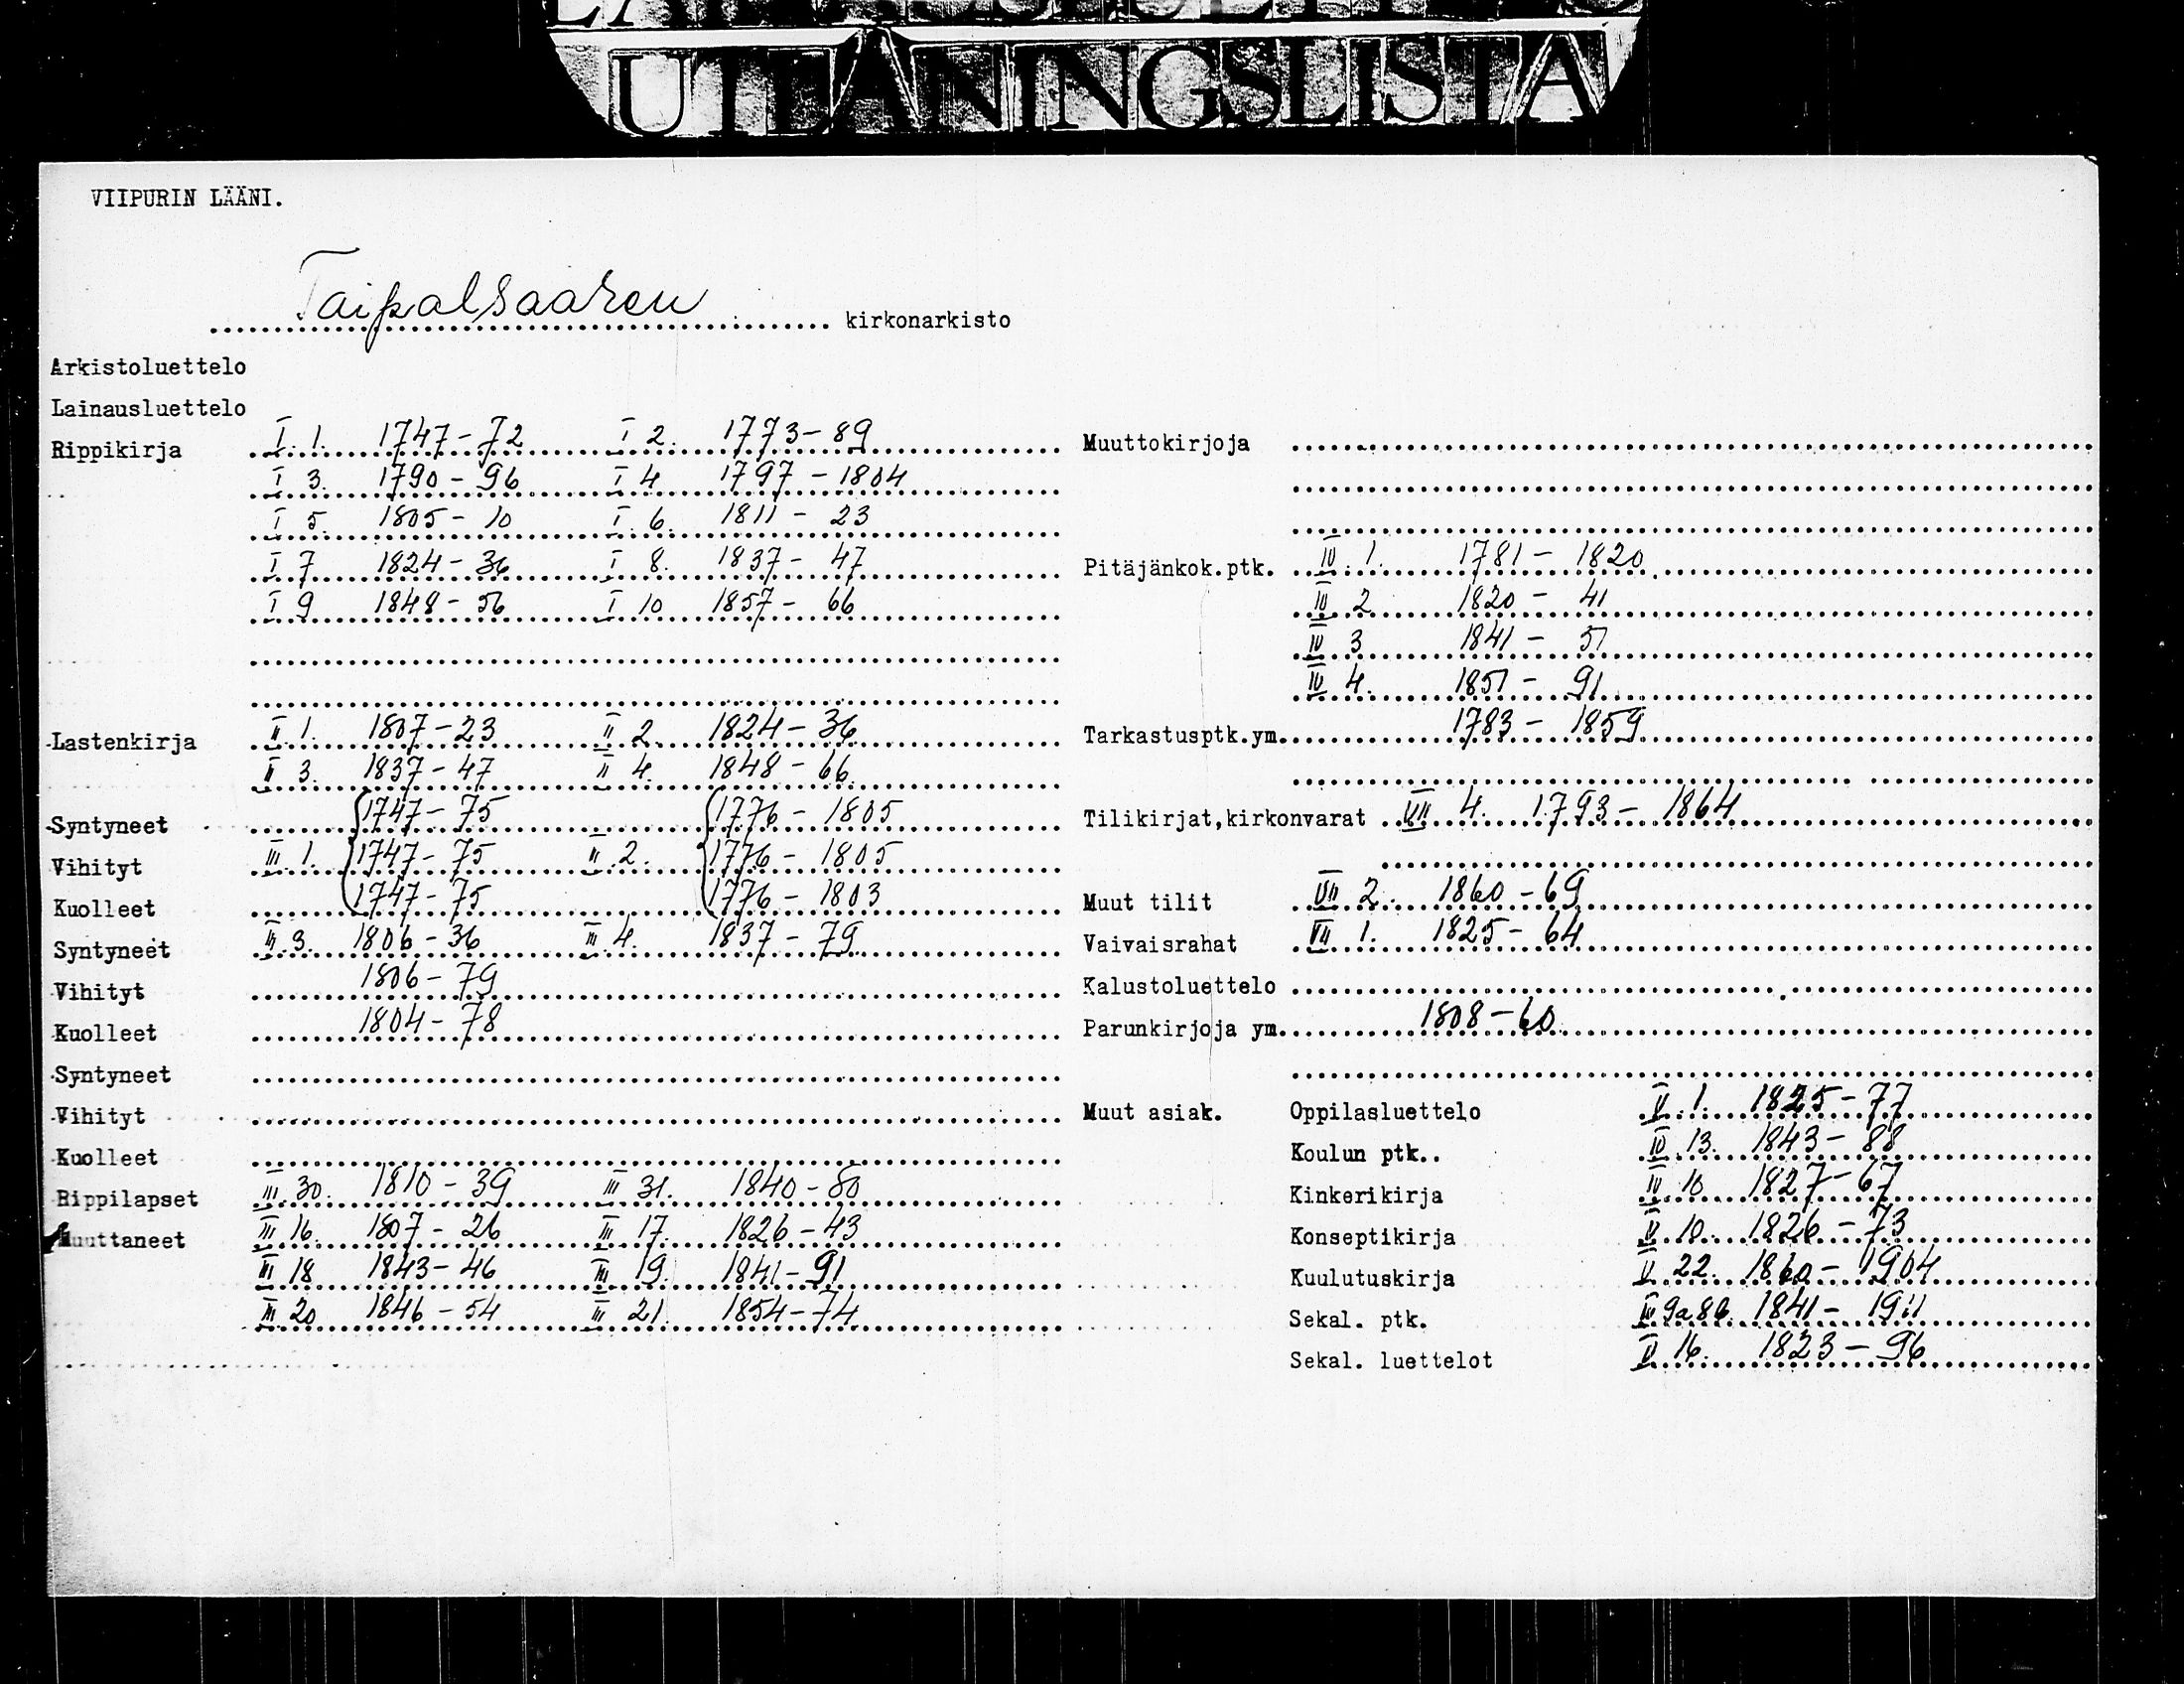 UTLÅNINGSLISTA
VIIPURIN LÄÄNI.
Taipalsaaren kirkonarkisto
Arkistoluettelo
Lainausluettelo
Rippikirja I. 1. 1747-72 I 2. 1773-89
I 3. 1790-96 I 4 1797-1804
I 5. 1805-10 I. 6. 1811-23
I 7 1824-36 I 8. 1837-47
I 9 1848-56 I 10 1857-66
Lastenkirja II 1. 1807-23 II 2 1824-36
II 3. 1837-47 II 4. 1848-66
Syntyneet 1747-75 1776-1805
Vihityt III. 1. 1747-75 II. 2. 1776-1805
Kuolleet 1747-75 1776-1803
Syntyneet III. 3. 1806-36 III. 4. 1837-79
Vihityt 1806-79
Kuolleet 1804-78
Syntyneet
Vihityt
Kuolleet
Rippilapset III. 30. 1810-39 III 31. 1840-80
Muuttaneet III 16. 1807-26 III 17. 1826-43
III 18 1843-46 III 19. 1841-91
III 20 1846-54 III 21. 1854-74
Muuttokirjoja
Pitäjänkok.ptk. IV. 1. 1781-1820
IV 2 1820-41
IV 3 1841-51
IV 4. 1851-91
Tarkastusptk.ym. 1783-1859
Tilikirjat,kirkonvarat VII 4. 1793-1864
Muut tilit VII 2. 1860-69
Vaivaisrahat VII 1. 1825-64
Kalustoluettelo
Parunkirjoja ym. 1808-60
Muut asiak. Oppilasluettelo V. 1. 1825-77
Koulun ptk.. IV. 13. 1843-88
Kinkerikirja IV. 10 1827-67
Konseptikirja 10. 1826-73
Kuulutuskirja 22. 1860-1904
Sekal. ptk. 1841-1911
Sekal. luettelot 16. 1823-96